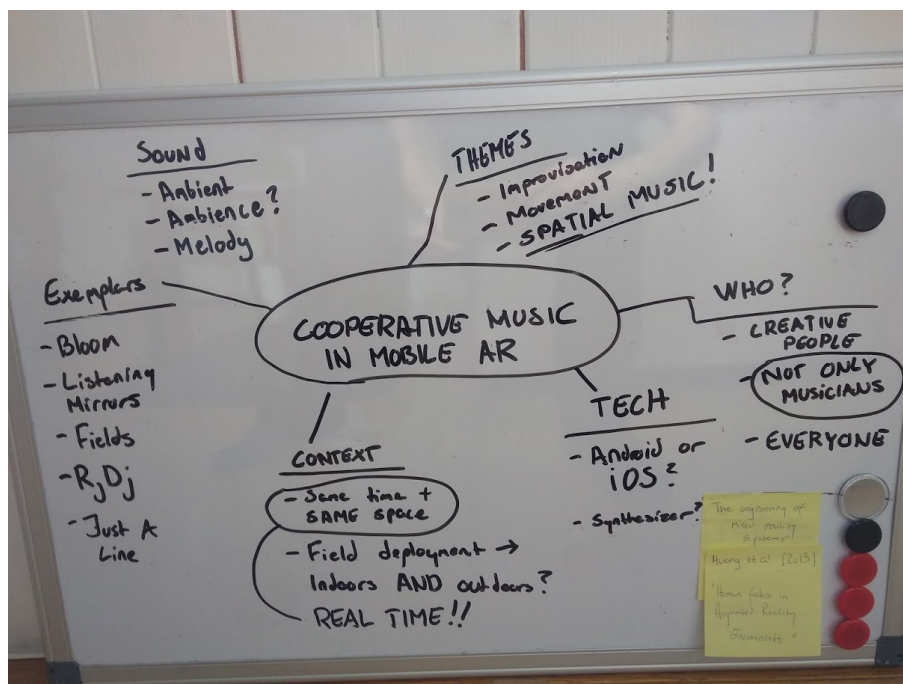 SOUND
- Ambient
- Ambience?
- Melody
THEMES
- Improvisation
- Movement
- SPATIAL MUSIC!
Exemplars
- Bloom
- Listening
Mirrors
- Fields
- RjDj
- Just A
Line
COOPERATIVE MUSIC
IN MOBILE AR
WHO?
- CREATIVE
PEOPLE
- NOT ONLY
MUSICIANS
- EVERYONE
TECH
- Android or
iOS?
- Synthesizer?
CONTEXT
- Same time +
SAME space
- Field deployment →
Indoors AND outdoors?
REAL TIME!!
The engineering of
Mixed reality
Systems
Huang et al. (2013)
'Human factors in
Augmented Reality
Environments